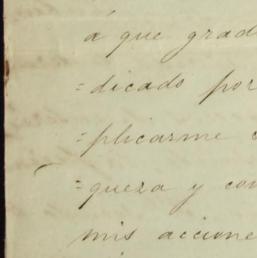 á que grad
=dicado por
=plicarme
=queza y con
mis accione